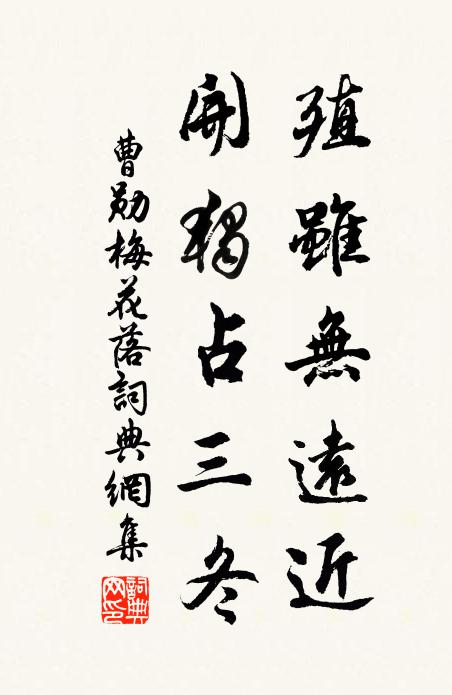 殖雖無遠近
開獨占三冬
曹勛梅花落詞典網集
詞典網印